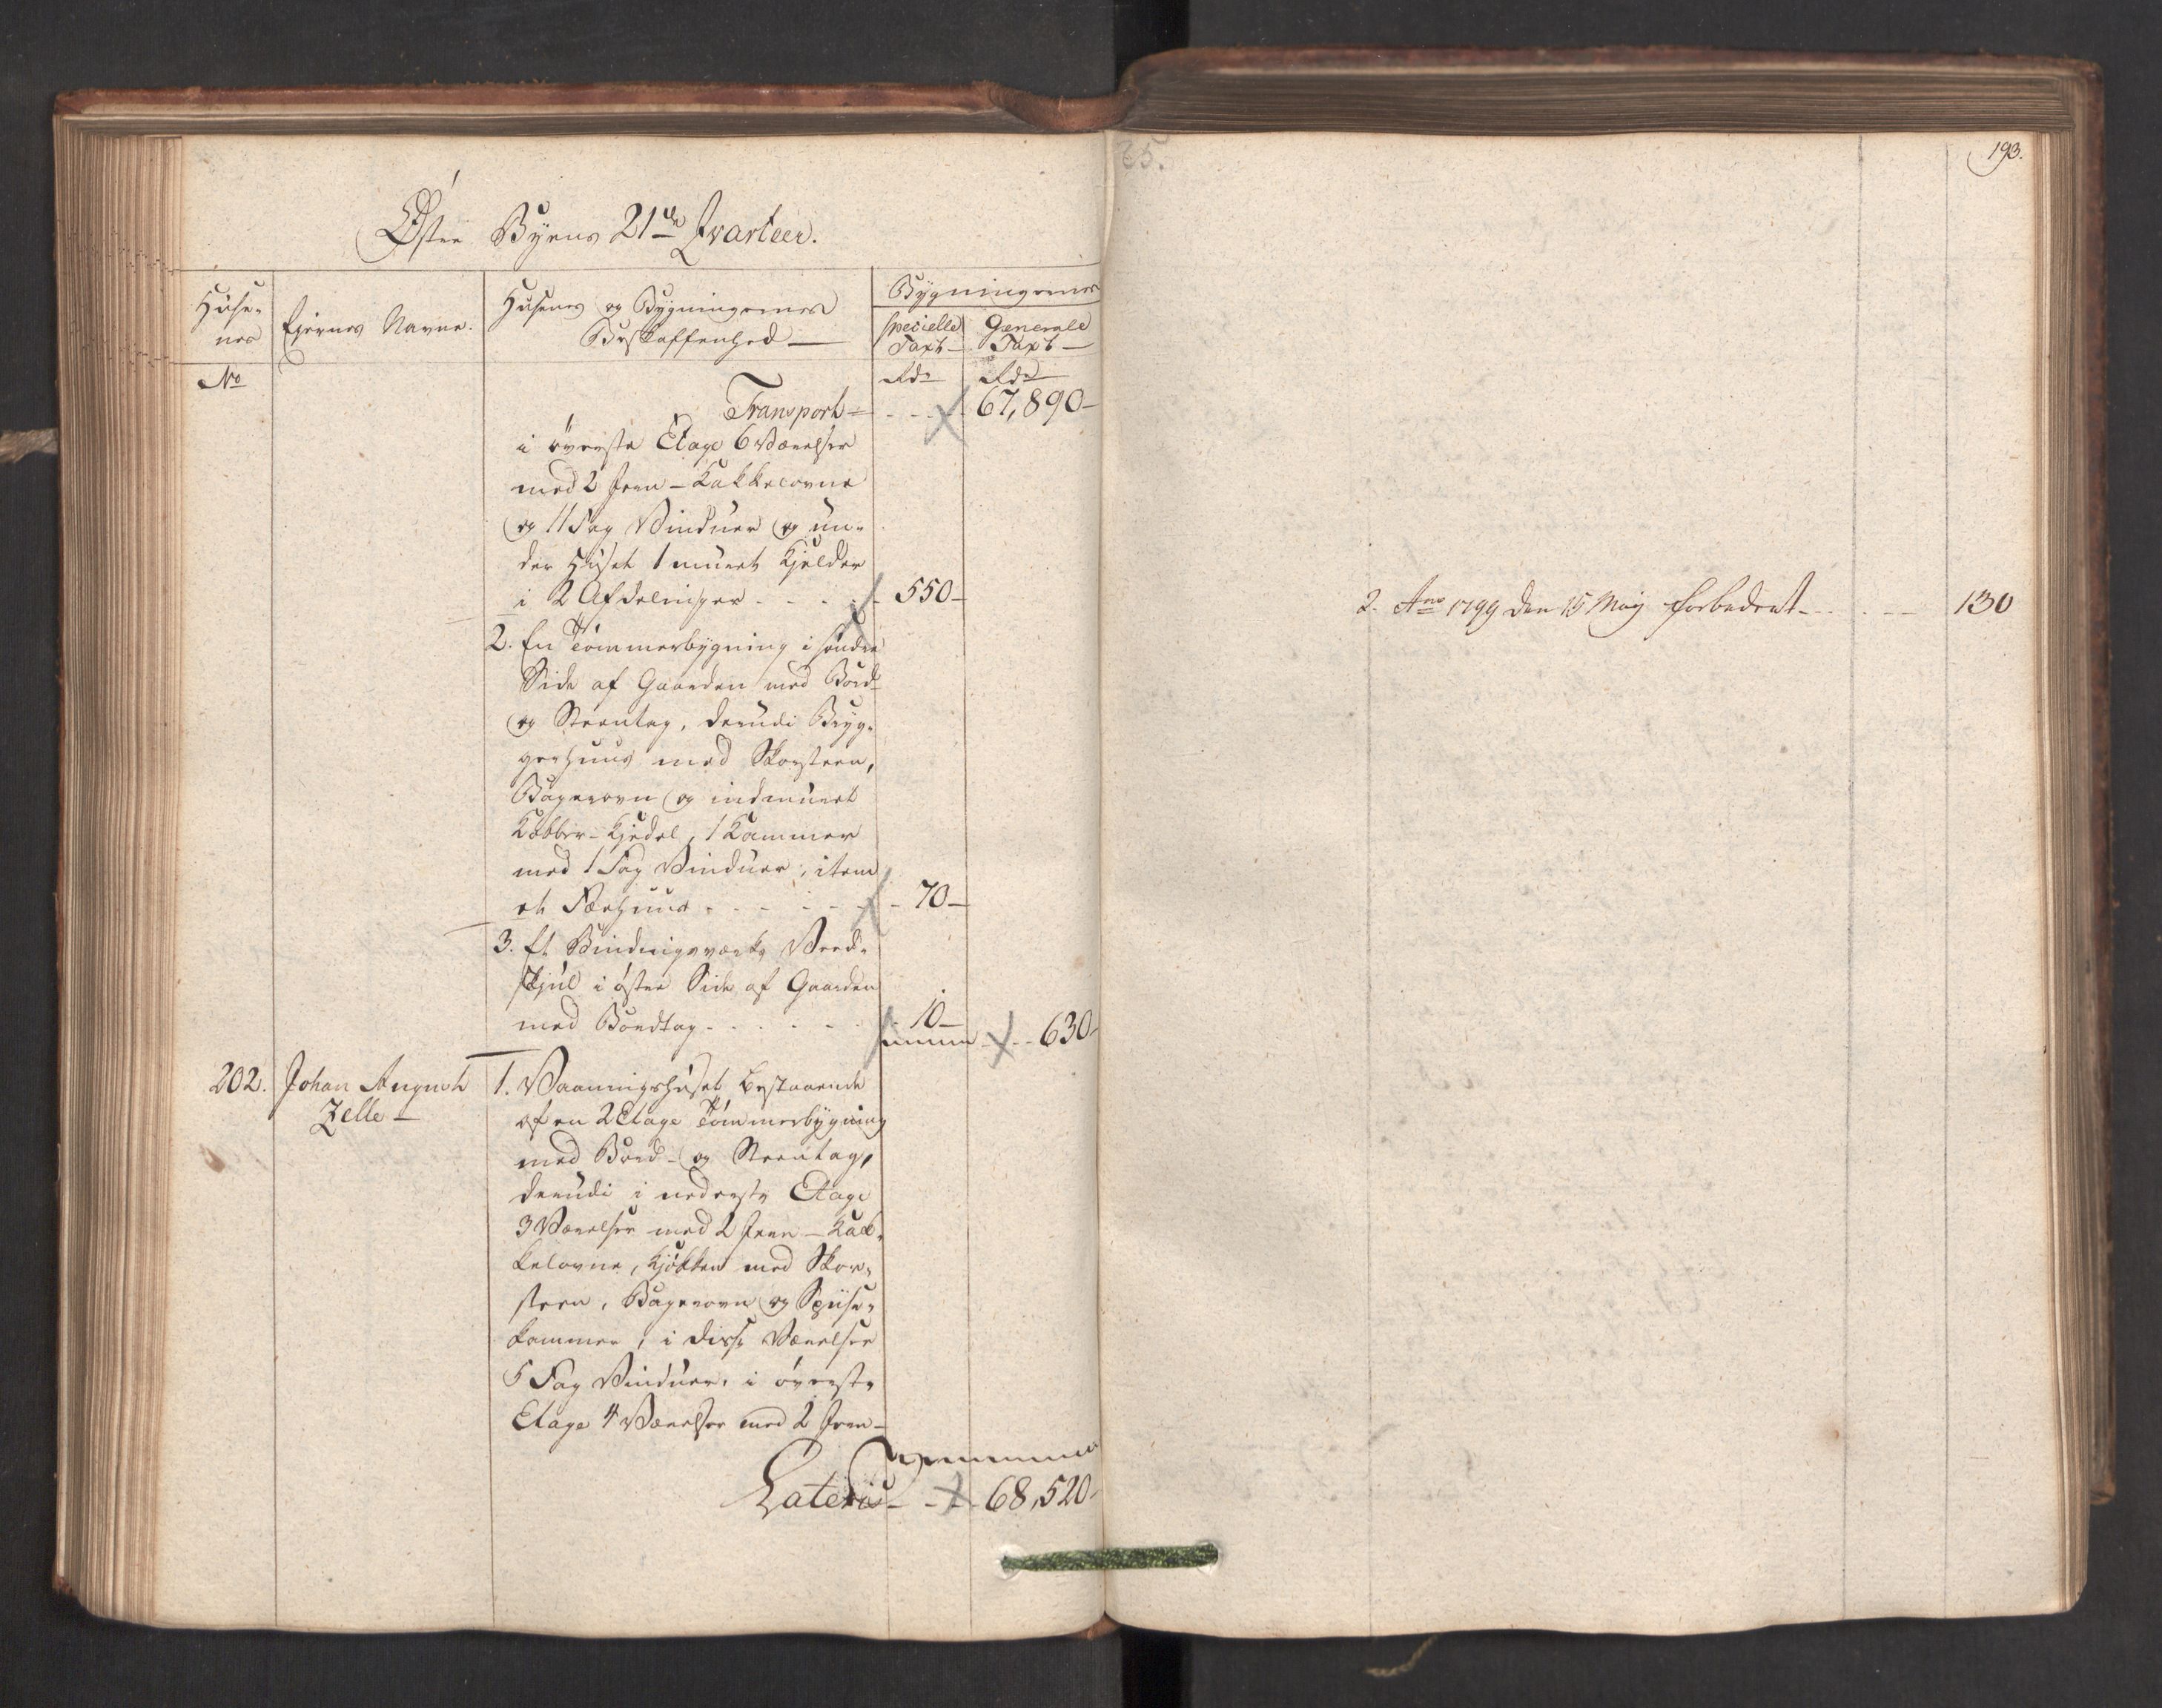 Østre Byens 21de Qvarteer.
Huse-
nes
Ejernes Navne.
Husenes og Bygningernes
Beskaffenhed
Bygningernes
specielle
Taxt
Generale
Taxt
No
Rdr
Rdr
Transport 67,890
i øverste Etage 6 Værelser
med 2 Jern-Kakkelovne
og 11 Fag Vinduer og un-
der Huset 1 muret Kjelder
i 2 Afdelinger 550
2. En Tømmerbygning i søndre
Side af Gaarden med Bord-
og Steentag, derudi Bryg-
gerhuus med Skorsteen,
Bagerovn og indmuret
Kobber-Kjedel, 1 Kammer
med 1 Fag Vinduer, item
et Fæehuus 70
3. Et Bindingsverks Veed-
skjul i østre Side af Gaarden
med Bordtag 10 630
202. Johan August
Zelle
1. Vaaningshuset bestaaende
af en 2 Etage Tømmerbygning
med Bord- og Steentag,
derudi i nederste Etage
3 Værelser med 2 Jern-Kak-
kelovne, Kjøkken med Skor-
steen, Bagerovn og Spiise-
kammer, i disse Værelser
5 Fag Vinduer, i øverste
Etage 4 Værelser med 2 Jern-
Lateris 68,520
193.
2. Ano 1799 den 15 May forbedret 130